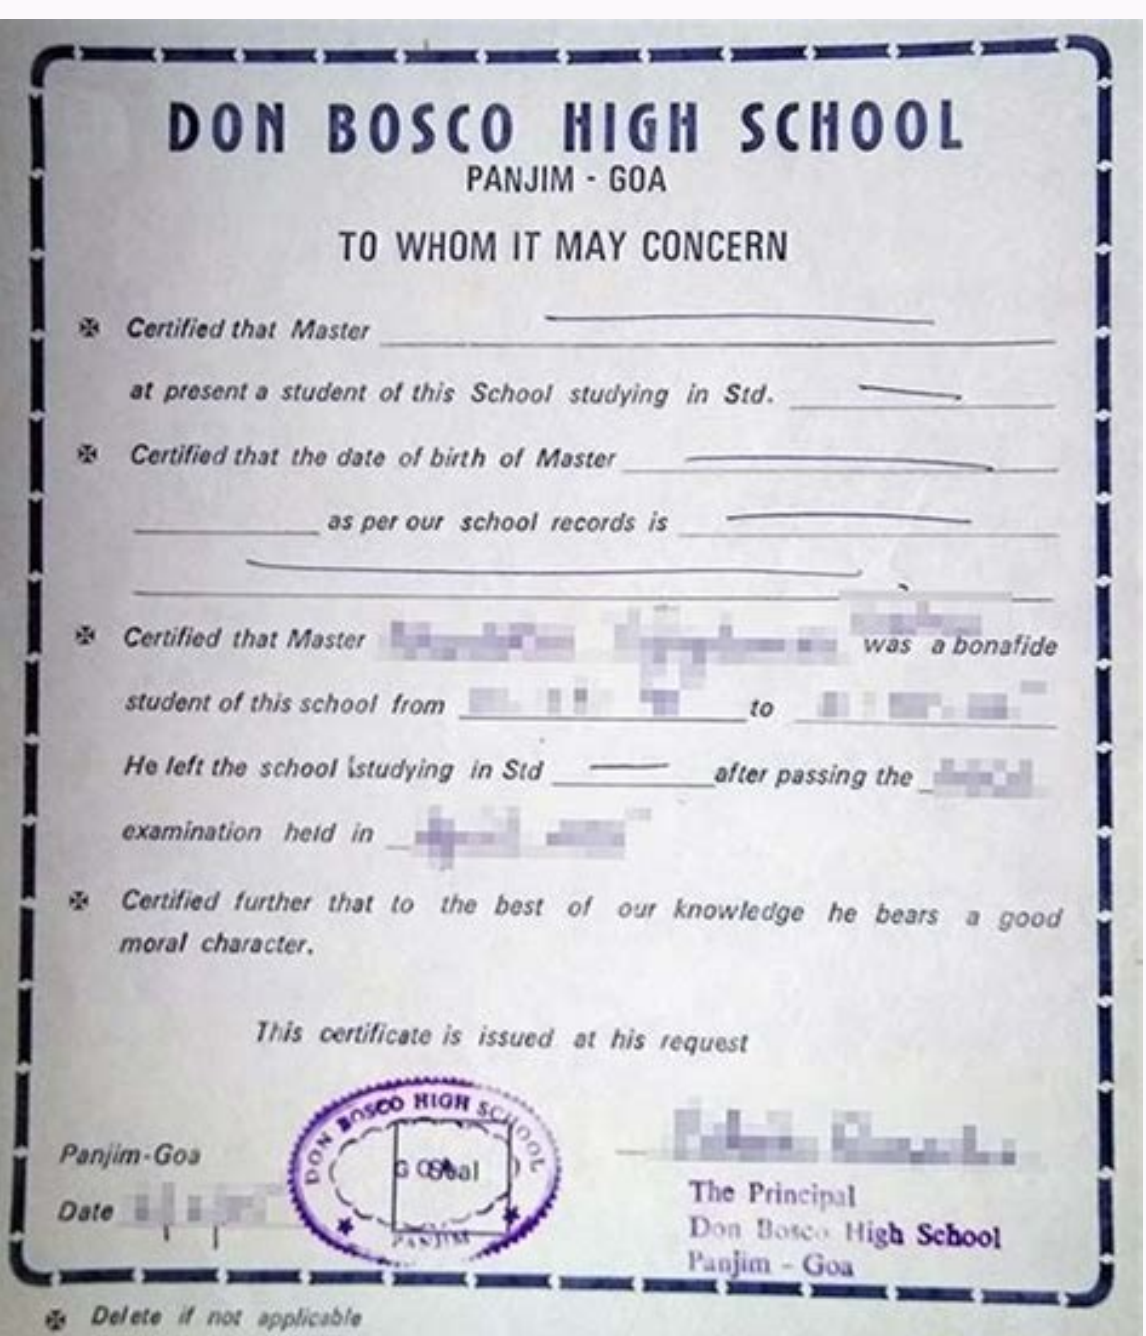 DON BOSCO HIGH SCHOOL
PANJIM - GOA
TO WHOM IT MAY CONCERN
Certified that Master
at present a student of this School studying in Std.
Certified that the date of birth of Master
as per our school records is
Certified that Master was a bonafide
student of this school from to
He left the school studying in Std after passing the
examination held in
Certified further that to the best of our knowledge he bears a good
moral character.
This certificate is issued at his request
DON BOSCO HIGH SCHOOL
GOA
Seal
PANJIM
Panjim-Goa
Date
The Principal
Don Bosco High School
Panjim - Goa
Delete if not applicable